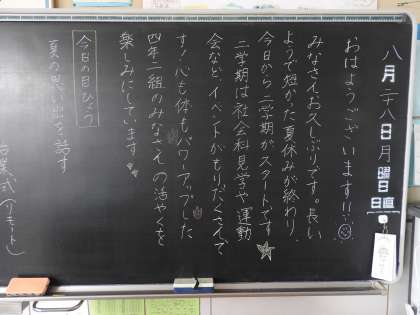 八月二十八日月曜日
日直
おはようございます!!
みなさんお久しぶりです。長い
ようで短かった夏休みが終わり、
今日から二学期がスタートです
二学期は社会科見学や運動
会など、イベントがもりだくさんで
す!心も体もパワーアップした
四年一組のみなさんの活やくを
楽しみにしています
今日の目ひょう
夏の思い出を話す
始業式(リモート)